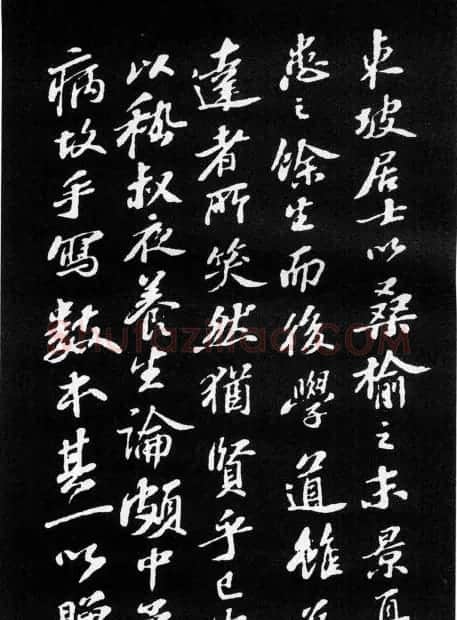 東坡居士以桑榆之末景
患之餘生而後學道雖
達者所笑然猶賢乎已
以嵇叔夜養生論頗中
病故手寫數本其一以贈